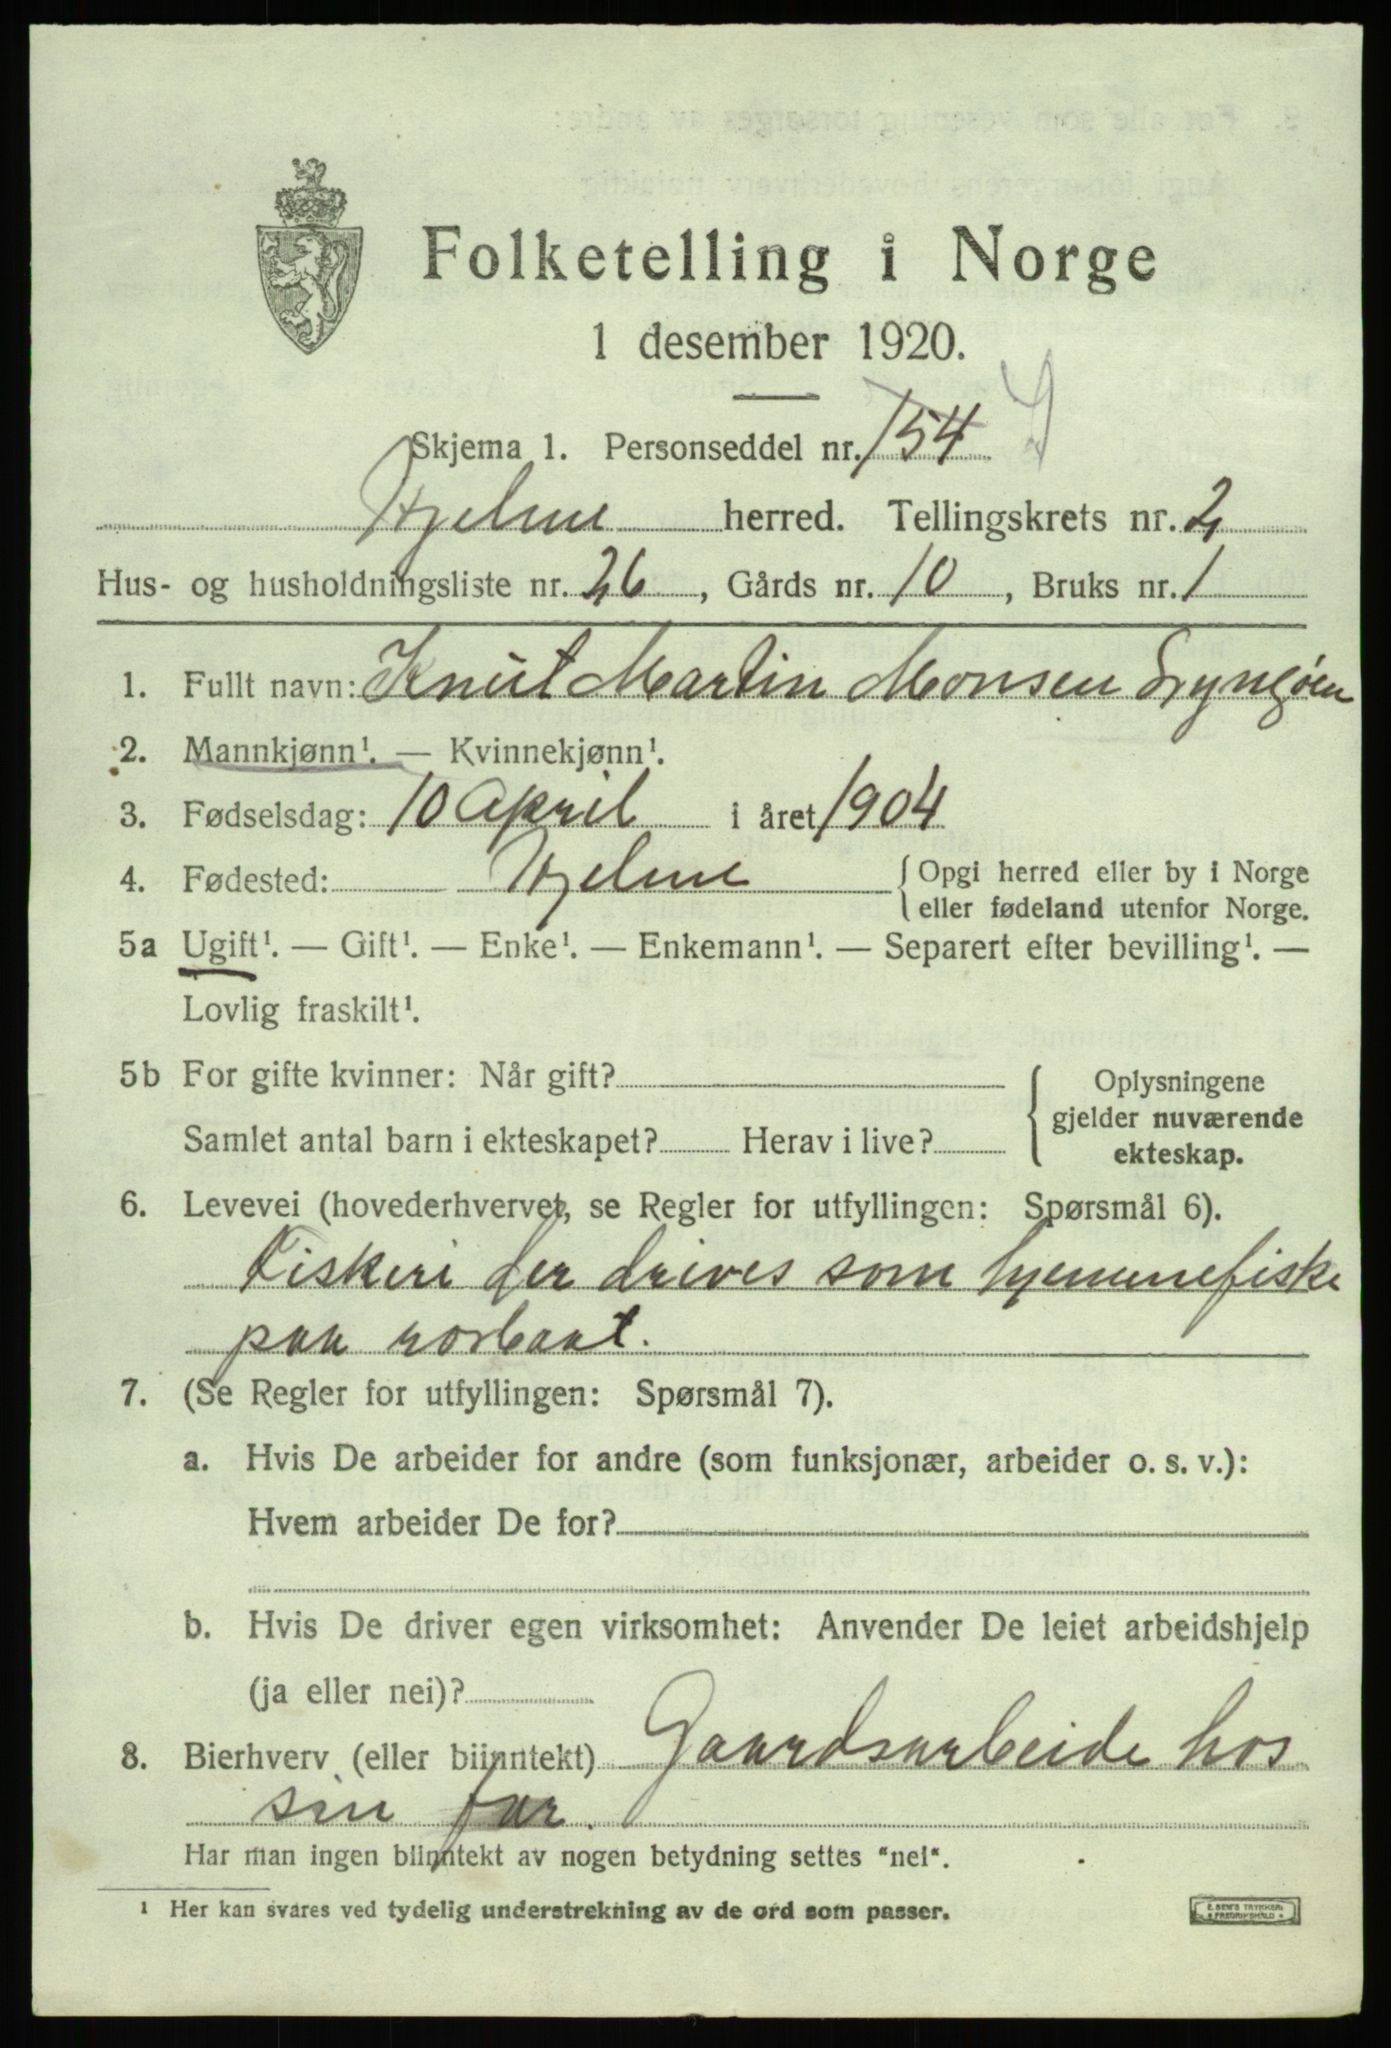 Folketelling i Norge
1 desember 1920.
Skjema 1. Personseddel nr. 154
Hjelme herred. Tellingskrets nr. 2
Hus- og husholdningsliste nr. 26, Gårds nr. 10, Bruks nr. 1
1. Fullt navn: Knut Martin Monsen Lyngöen
2. Mannkjønn¹. — Kvinnekjønn¹.
3. Fødselsdag: 10 April i året 1904
4. Fødested: Hjelme { Opgi herred eller by i Norge
eller fødeland utenfor Norge.
5a Ugift¹. — Gift¹. — Enke¹. — Enkemann¹. — Separert efter bevilling¹. —
Lovlig fraskilt¹.
5b For gifte kvinner: Når gift? { Oplysningene
gjelder nuværende
Samlet antal barn i ekteskapet? Herav i live? ekteskap.
6. Levevei (hovederhvervet, se Regler for utfyllingen: Spørsmål 6).
Fiskeri der drives som hjemmefiske
paa rorbaat.
7. (Se Regler for utfyllingen: Spørsmål 7).
a. Hvis De arbeider for andre (som funksjonær, arbeider o. s. v.):
Hvem arbeider De for?
b. Hvis De driver egen virksomhet: Anvender De leiet arbeidshjelp
(ja eller nei)?
8. Bierhverv (eller biinntekt) Gaardsarbeide hos
sin far.
Har man ingen biinntekt av nogen betydning settes "nei".
¹ Her kan svares ved tydelig understrekning av de ord som passer.